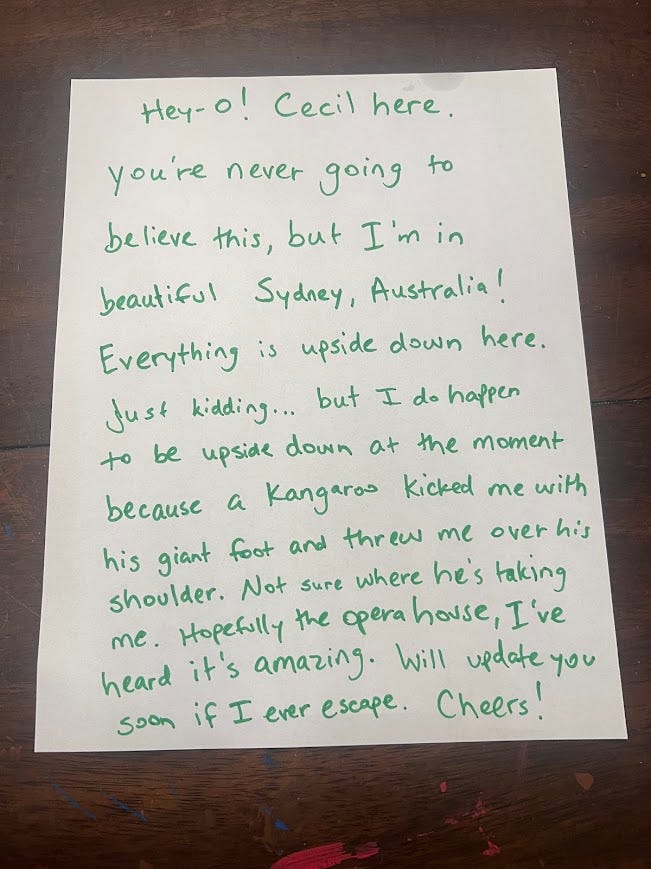 Hey-O! Cecil here.
you're never going to
believe this, but I'm in
beautiful Sydney, Australia!
Everything is upside down here.
Just kidding... but I do happen
to be upside down at the moment
because a Kangaroo kicked me with
his giant foot and threw me over his
shoulder. Not sure where he's taking
me. Hopefully the opera house, I've
heard it's amazing. Will update you
soon if I ever escape. Cheers!